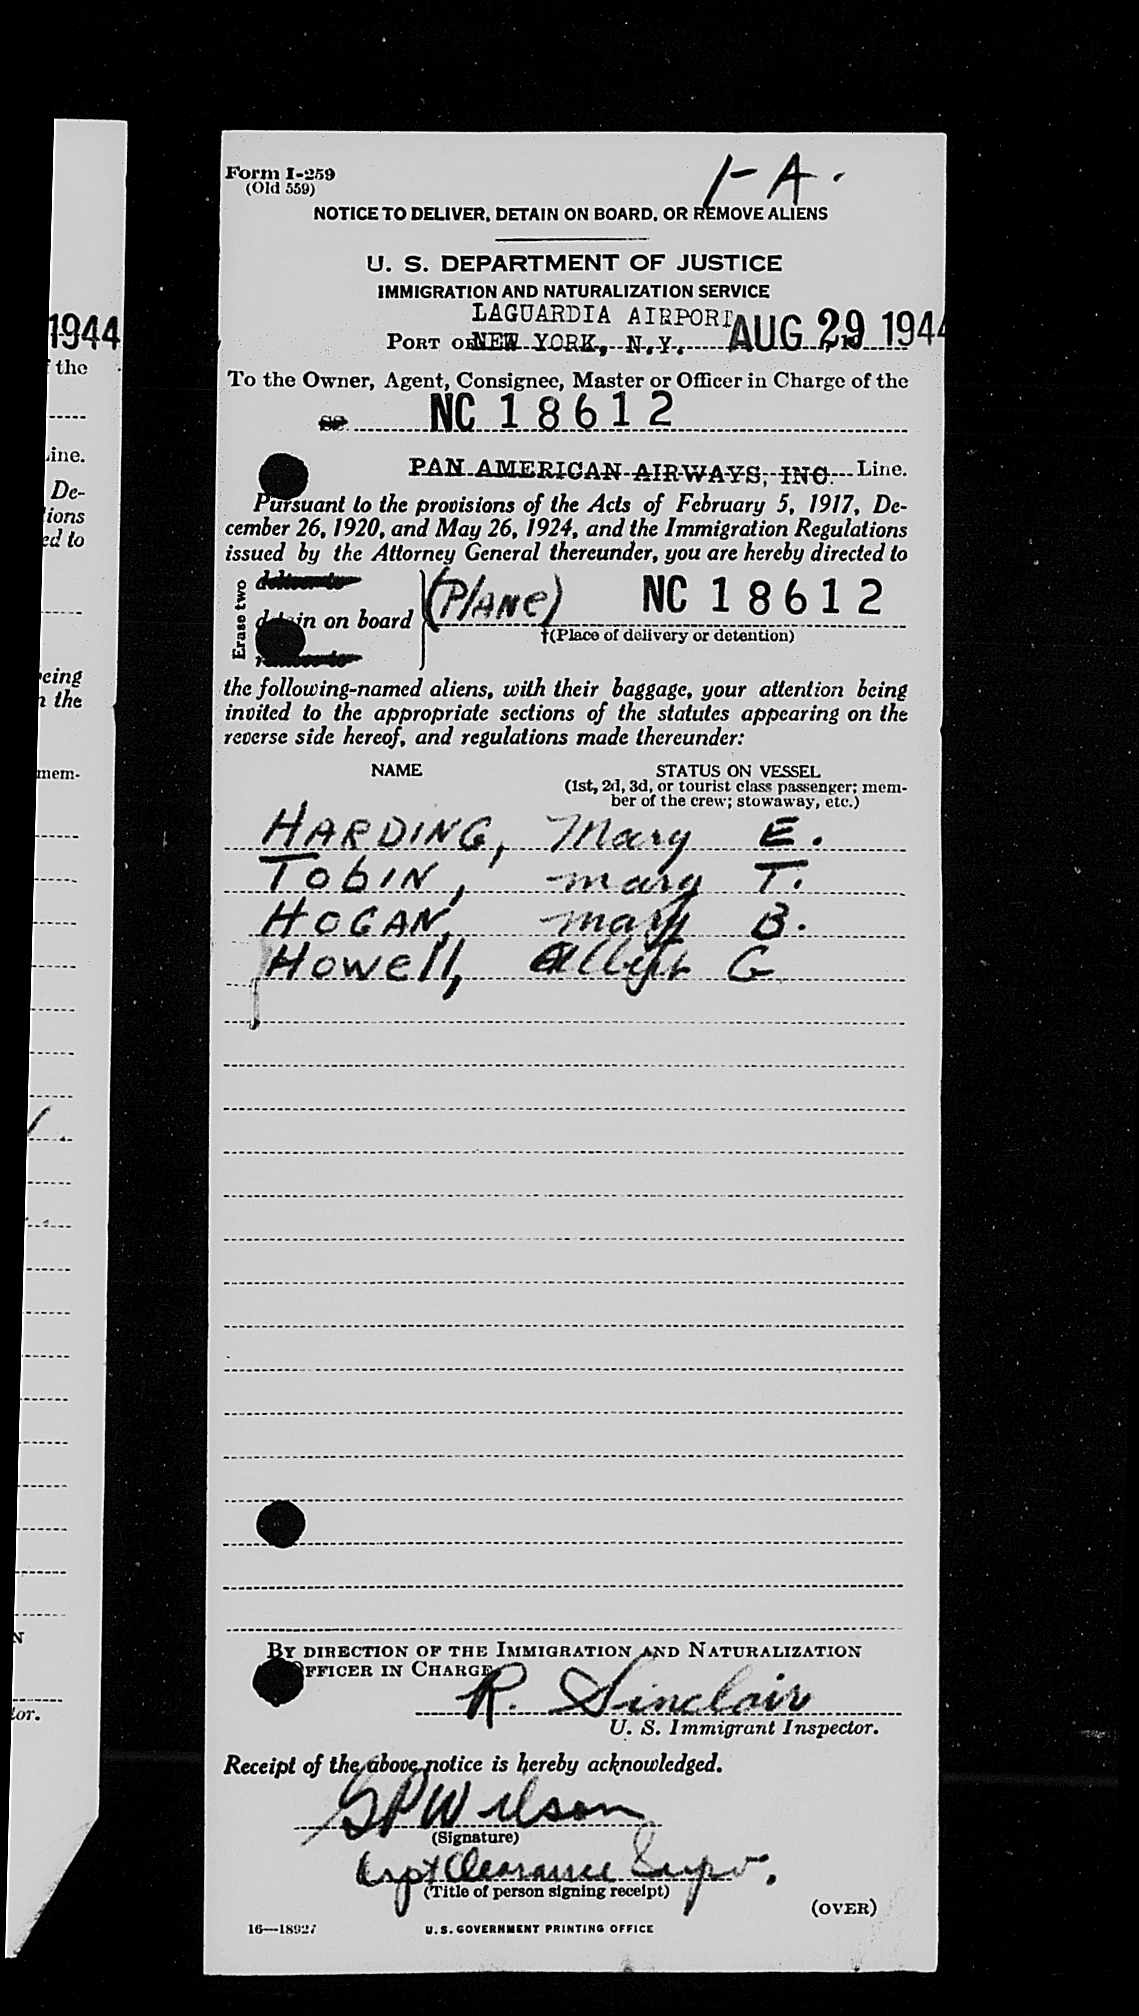 1944
the
ine.
De-
ions
ed to
eing
n the
mem-
or.
Form I-259
(Old 559)
1-A.
NOTICE TO DELIVER, DETAIN ON BOARD, OR REMOVE ALIENS
U. S. DEPARTMENT OF JUSTICE
IMMIGRATION AND NATURALIZATION SERVICE
LAGUARDIA AIRPORT
PORT OF NEW YORK, N.Y. AUG 29 1944
To the Owner, Agent, Consignee, Master or Officer in Charge of the
SS. NC 18612
PAN AMERICAN AIRWAYS, INC. Line.
Pursuant to the provisions of the Acts of February 5, 1917, De-
cember 26, 1920, and May 26, 1924, and the Immigration Regulations
issued by the Attorney General thereunder, you are hereby directed to
Erase two
deliver to
detain on board (PLANE) NC 18612
remove to
†(Place of delivery or detention)
the following-named aliens, with their baggage, your attention being
invited to the appropriate sections of the statutes appearing on the
reverse side hereof, and regulations made thereunder:
NAME STATUS ON VESSEL
(1st, 2d, 3d, or tourist class passenger; mem-
ber of the crew; stowaway, etc.)
HARDING, Mary E.
TobIN, mary T.
HOGAN, mary B.
Howell, G
BY DIRECTION OF THE IMMIGRATION AND NATURALIZATION
OFFICER IN CHARGE
R. Sinclair
U. S. Immigrant Inspector.
Receipt of the above notice is hereby acknowledged.
GPWilson
(Signature)
Clearance Supv.
(Title of person signing receipt)
(OVER)
16—18927 U.S. GOVERNMENT PRINTING OFFICE